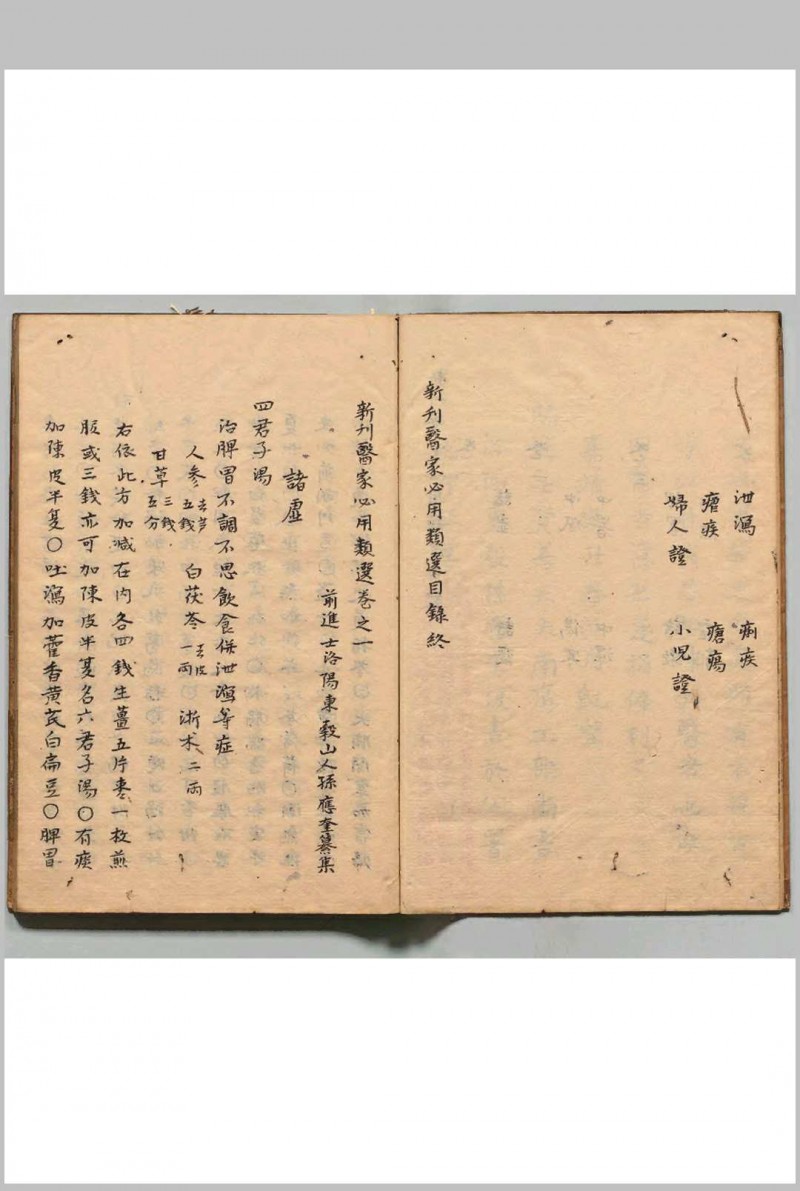 泄瀉 痢疾
瘧疾 瘡瘍
婦人證 小兒證
新刋醫家必用類選目錄終
新刋醫家必用類選卷之一
前進士洛陽東穀山人孫應奎纂集
諸虛
四君子湯
治脾胃不調不思飲食併泄瀉等症
人參去芦五錢 白茯苓去皮一兩 浙术二兩
甘草三錢五分
右依此方加减在内各四錢生薑五片枣一枚煎
服或三錢亦可加陳皮半夏名六君子湯〇有痰
加陳皮半夏〇吐瀉加藿香黄芪白扁豆〇脾胃